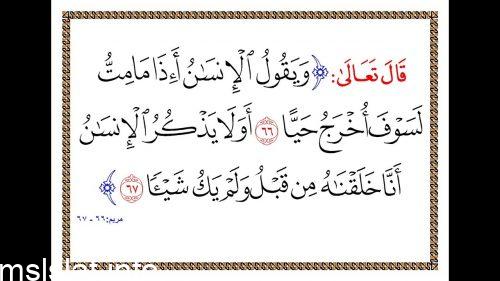 قَالَ تَعَالَىٰ: ﴿وَيَقُولُ ٱلْإِنسَٰنُ أَءِذَا مَا مِتُّ
لَسَوْفَ أُخْرَجُ حَيًّا ٦٦ أَوَلَا يَذْكُرُ ٱلْإِنسَٰنُ
أَنَّا خَلَقْنَٰهُ مِن قَبْلُ وَلَمْ يَكُ شَيْـًٔا ٦٧﴾
مريم: ٦٦ - ٦٧